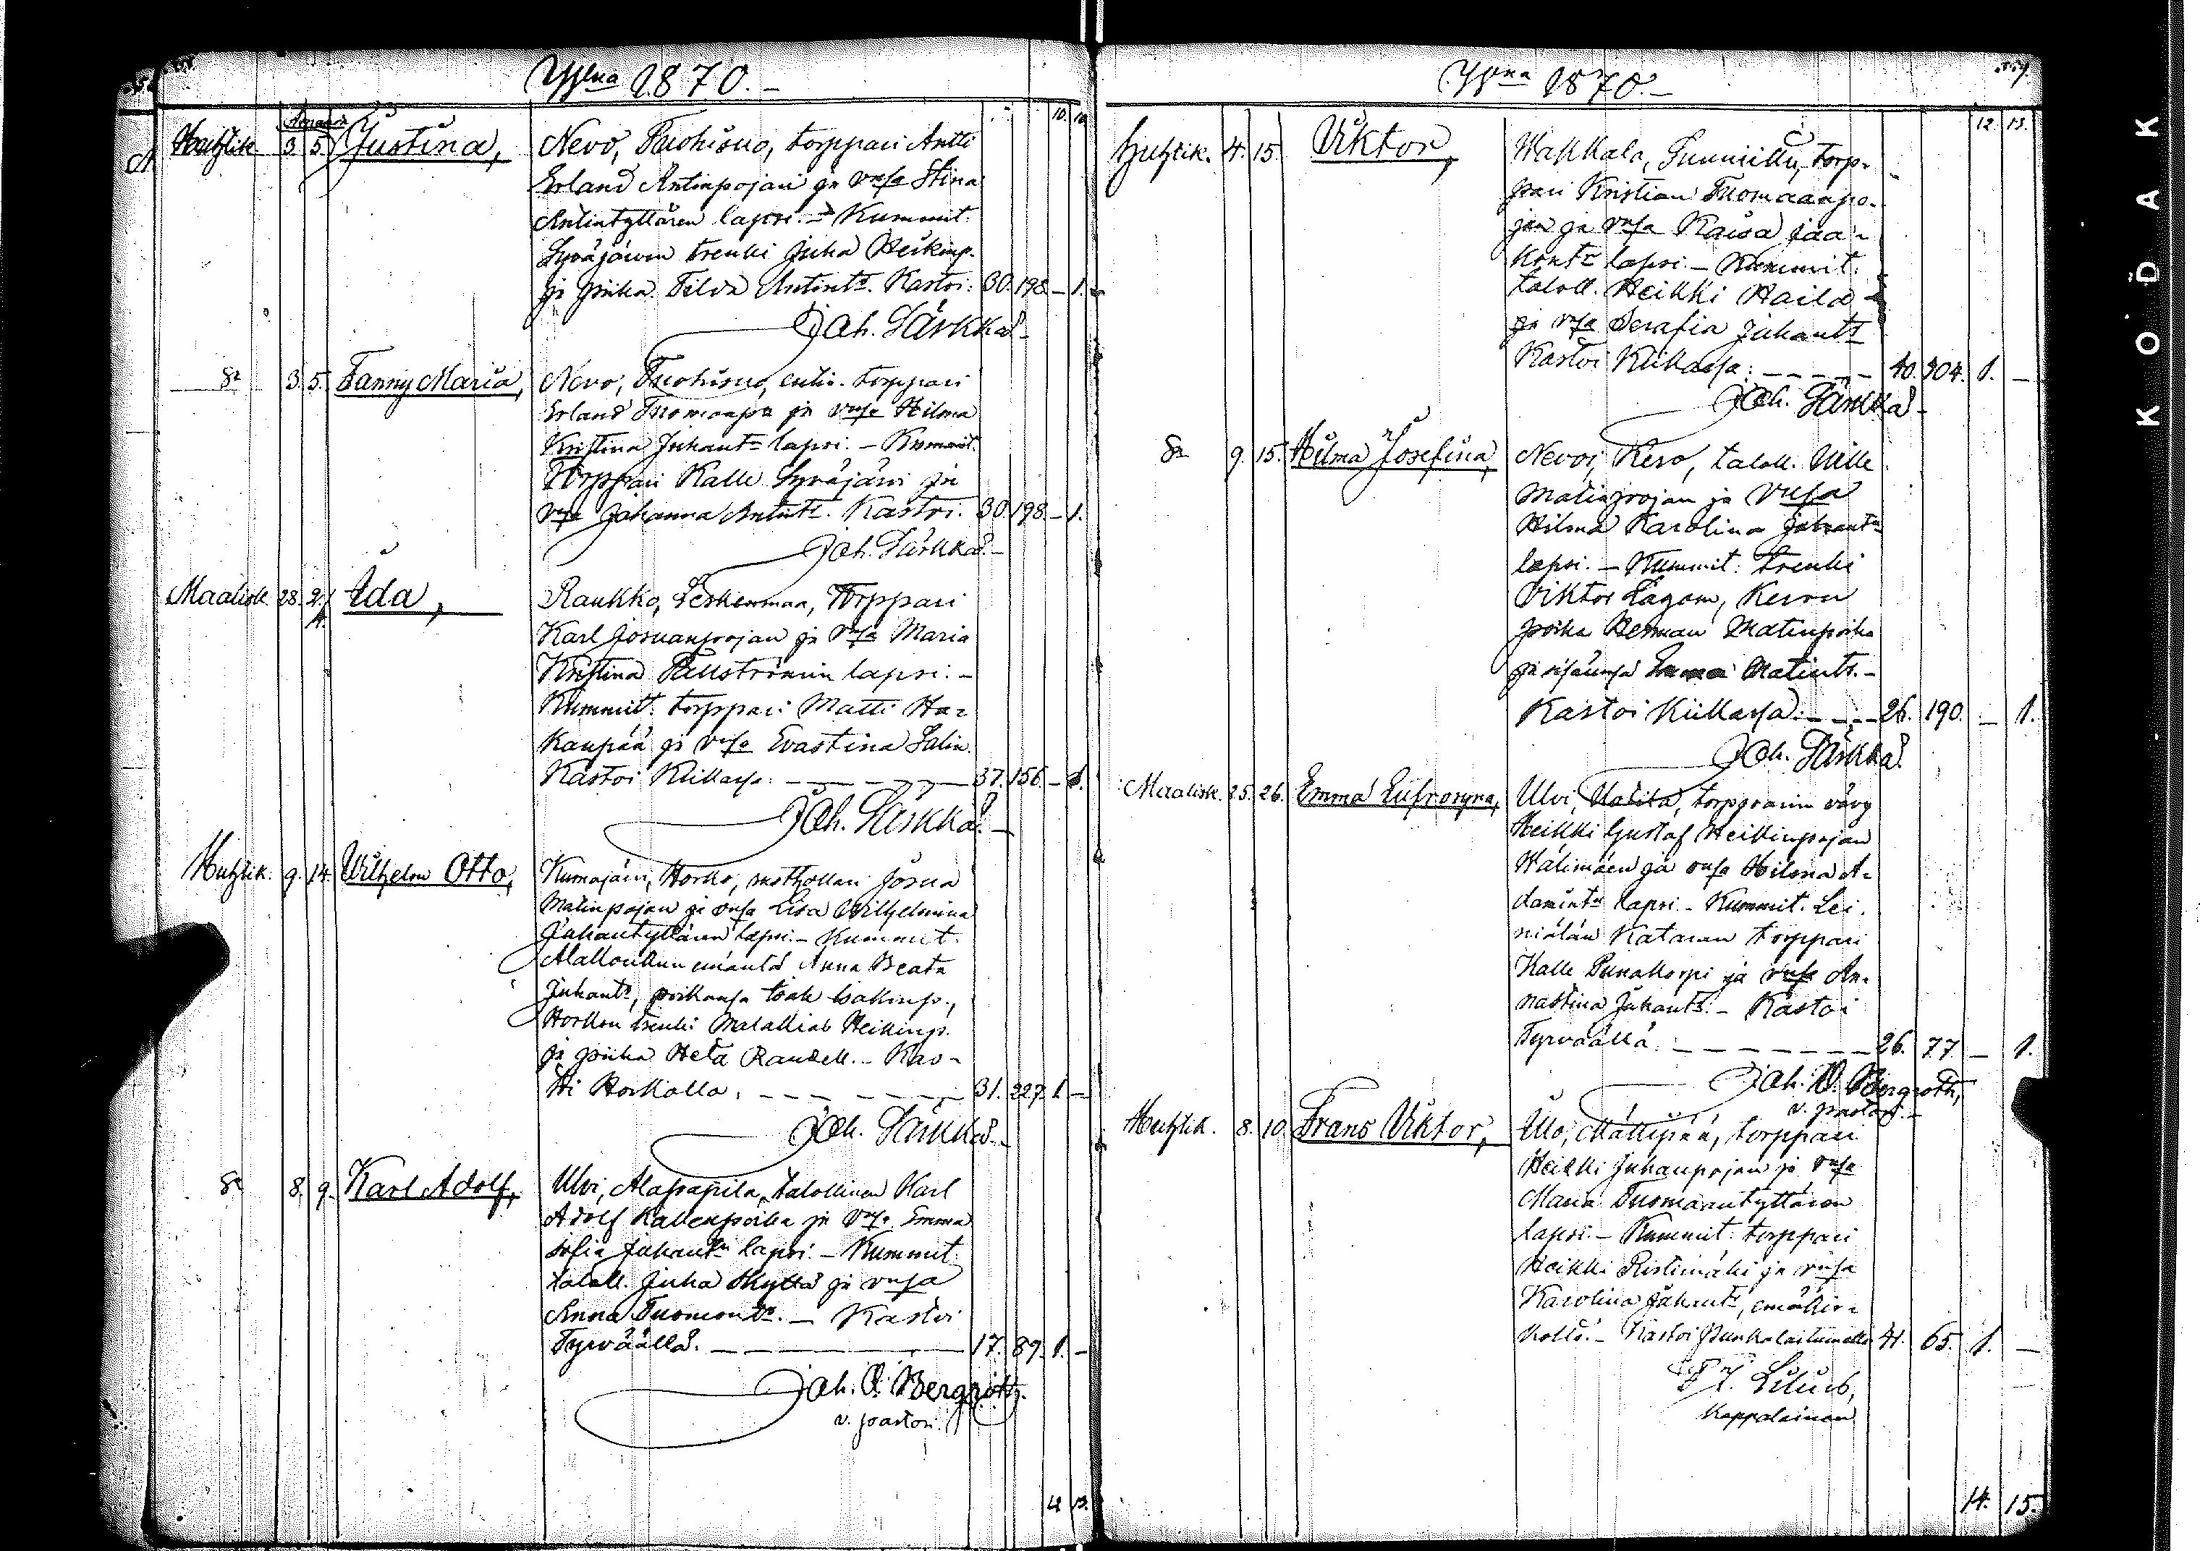 Vna 1870.-
10.
Huhtik. 3. 5. Justina, Nevo, Tuohisuo, torppari Antti
Erland Antinpojan ja vmsa Stina
Antintyttären lapsi. - Kummit.
Syväjärven trenki Juha Heikinp.
ja piika Tilda Antintr. Kastoi: 30. 198 - 1.
Joh. Särkkä.
3. 5. Fanny Maria, Nevo, Tuohisuo, torppari
Erland Tuomaanpn ja vmsa Hilma
Kristina Juhantr lapsi. - Kummit.
Torppari Kalle Syväjärvi ja
vmsa Johanna Antintr. Kastoi. 30. 198 - 1.
Joh. Särkkä. -
Maalisk. 28. 2/4. Ida, Raukko, Leskenmaa, Torppari
Karl Josuanpojan ja vmsa Maria
Kristina Fallströmin lapsi. -
Kummit. torppari Matti Ha-
kaupää ja vmsa Evastina Salin.
Kastoi Kiikassa: 37. 156. - 1.
Joh. Särkkä. -
Huhtik. 9. 14. Wilhelm Otto, Kumajärvi, Horko, Josua
Matinpojan ja vmsa Lisa Wilhelmina
Juhantyttären lapsi. - Kummit.
emäntä Anna Beata
Juhantr, poikansa Isak Isakinp.,
Horkon trenki Matallias Heikinp.
ja piika Heta Randell. - Kas-
ti Horkolla. 31. 227. 1. -
Joh. Särkkä. -
8. 9. Karl Adolf, Ulvi, Alapapila, talollinen Karl
Adolf Kallenpoika ja vmsa Emma
Sofia Juhantr lapsi. - Kummit.
taloll. Juha Skyttä ja vmsa
Anna Tuomontr. - Kastoi
Tyrväällä. 17. 89. 1. -
Joh. O. Bergroth.
v. pastori.
12. 13.
Vna 1870. -
12. 13.
Huhtik. 4. 15. Viktor, Wakkala, torp-
pari Kristian Tuomaanpo-
jan ja vmsa Kaisa Jaa-
kontr lapsi. - Kummit.
taloll. Heikki Haila
ja vmsa Serafia Juhantr
Kastoi Kiikassa: 40. 304. 1. -
Joh. Särkkä -
9. 15. Hilma Josefina, Nevoi, Kero, taloll. Ville
Matinpojan ja vmsa
Hilma Karolina Juhantr
lapsi. - Kummit: trenki
Viktor Lagom, Keron
poika Herman Matinpoika
ja sisarensa Matintr. -
Kastoi Kiikassa. 26. 190. - 1.
Joh. Särkkä.
Maalisk. 25. 26. Emma Eufrosyna, Ulvi, torpparin vävy
Heikki Gustaf Heikinpojan
Wälimäen ja vmsa Hilma A-
damintr lapsi. - Kummit. Lei-
niälän Kataran torppari
Kalle Punakorpi ja vmsa An-
nastina Juhantr. - Kastoi
Tyrväällä. 26. 77. - 1.
Joh. O. Bergroth,
v. pastori. -
Huhtik. 8. 10. Frans Viktor, Illo, Mättipää, torppari
Heikki Juhanpojan ja vmsa
Maria Tuomaantyttären
lapsi. - Kummit: torppari
Heikki Ristimäki ja vmsa
Karolina Juhantr,
Kastoi Punkalaitumella 41. 65. 1. -
Kappalainen
14. 15.
KODAK